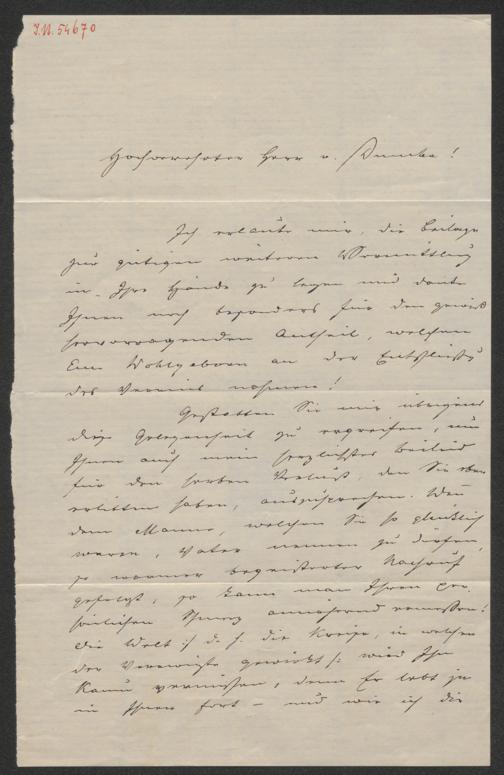 I.N. 54670
Hochverehrter Herr v. Dumba!
Ich erlaube mir, die Beilage
zur gütigen weiteren Vermittlung
in Ihre Hände zu legen und danke
Ihnen noch besonders für den gewiß
hervorragenden Antheil, welchen
Euer Wohlgeboren an der Entschließung
des Vereins nahmen!
Gestatten Sie mir übrigens
diese Gelegenheit zu ergreifen, um
Ihnen auch mein herzlichstes Beileid
für den herben Verlust, den Sie eben
erlitten haben, auszusprechen. Wenn
dem Manne, welchen Sie so glücklich
waren, Vater nennen zu dürfen,
so warmer begeisterter Nachruf
gefolgt, so kann man Ihren per-
sönlichen Schmerz annähernd ermessen!
Die Welt :/ d. h. die Kreise, in welchen
der Verewigte gewirkt /: wird Ihn
kaum vermissen, denn Er lebt ja
in Ihnen fort – und wie ich die